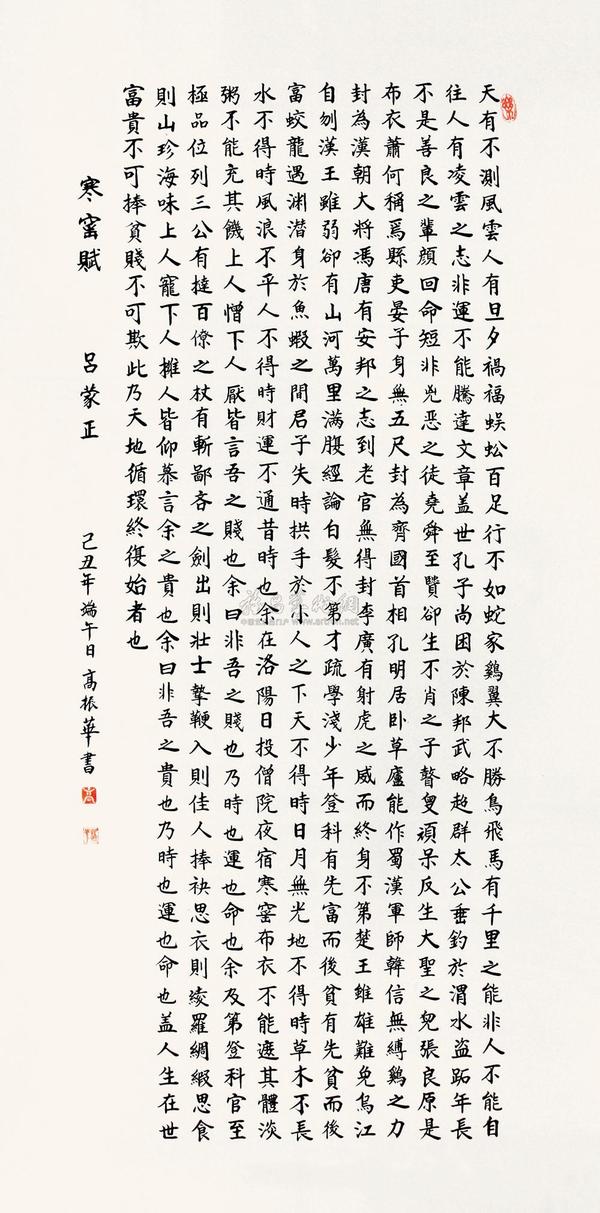 天有不測風雲人有旦夕禍福蜈蚣百足行不如蛇家鷄翼大不勝鳥飛馬有千里之能非人不能自
往人有凌雲之志非運不能騰達文章盖世孔子尚困於陳邦武略超群太公垂釣於渭水盗跖年長
不是善良之輩顔回命短非兇惡之徒堯舜至賢卻生不肖之子瞽叟頑呆反生大聖之兒張良原是
布衣蕭何稱焉縣吏晏子身無五尺封為齊國首相孔明居卧草廬能作蜀漢軍師韓信無縛鷄之力
封為漢朝大將馮唐有安邦之志到老官無得封李廣有射虎之威而終身不第楚王雖雄難免烏江
自刎漢王雖弱卻有山河萬里满腹經論白髮不第才疏學淺少年登科有先富而後貧有先貧而後
富蛟龍遇渊潛身於魚蝦之間君子失時拱手於小人之下天不得時日月無光地不得時草木不長
水不得時風浪不平人不得時財運不通昔時也余在洛陽日投僧院夜宿寒窑布衣不能遮其體淡
粥不能充其饑上人憎下人厭皆言吾之賤也余曰非吾之賤也乃時也運也命也余及第登科官至
極品位列三公有撻百僚之杖有斬鄙吝之劍出則壯士摯鞭入則佳人捧袂思衣則綾羅綢緞思食
則山珍海味上人寵下人擁人皆仰慕言余之貴也余曰非吾之貴也乃時也運也命也盖人生在世
富貴不可捧貧賤不可欺此乃天地循環終復始者也
寒窑賦 呂蒙正 己丑年端午日高振華書